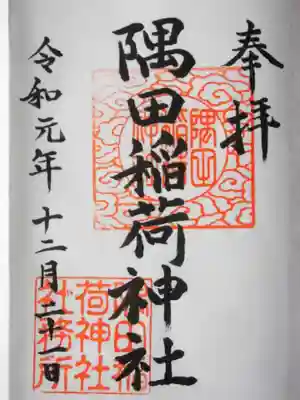 奉拝
隅田稲荷神社
令和元年十二月二十一日
隅田
隅田稲
荷神社
社務所